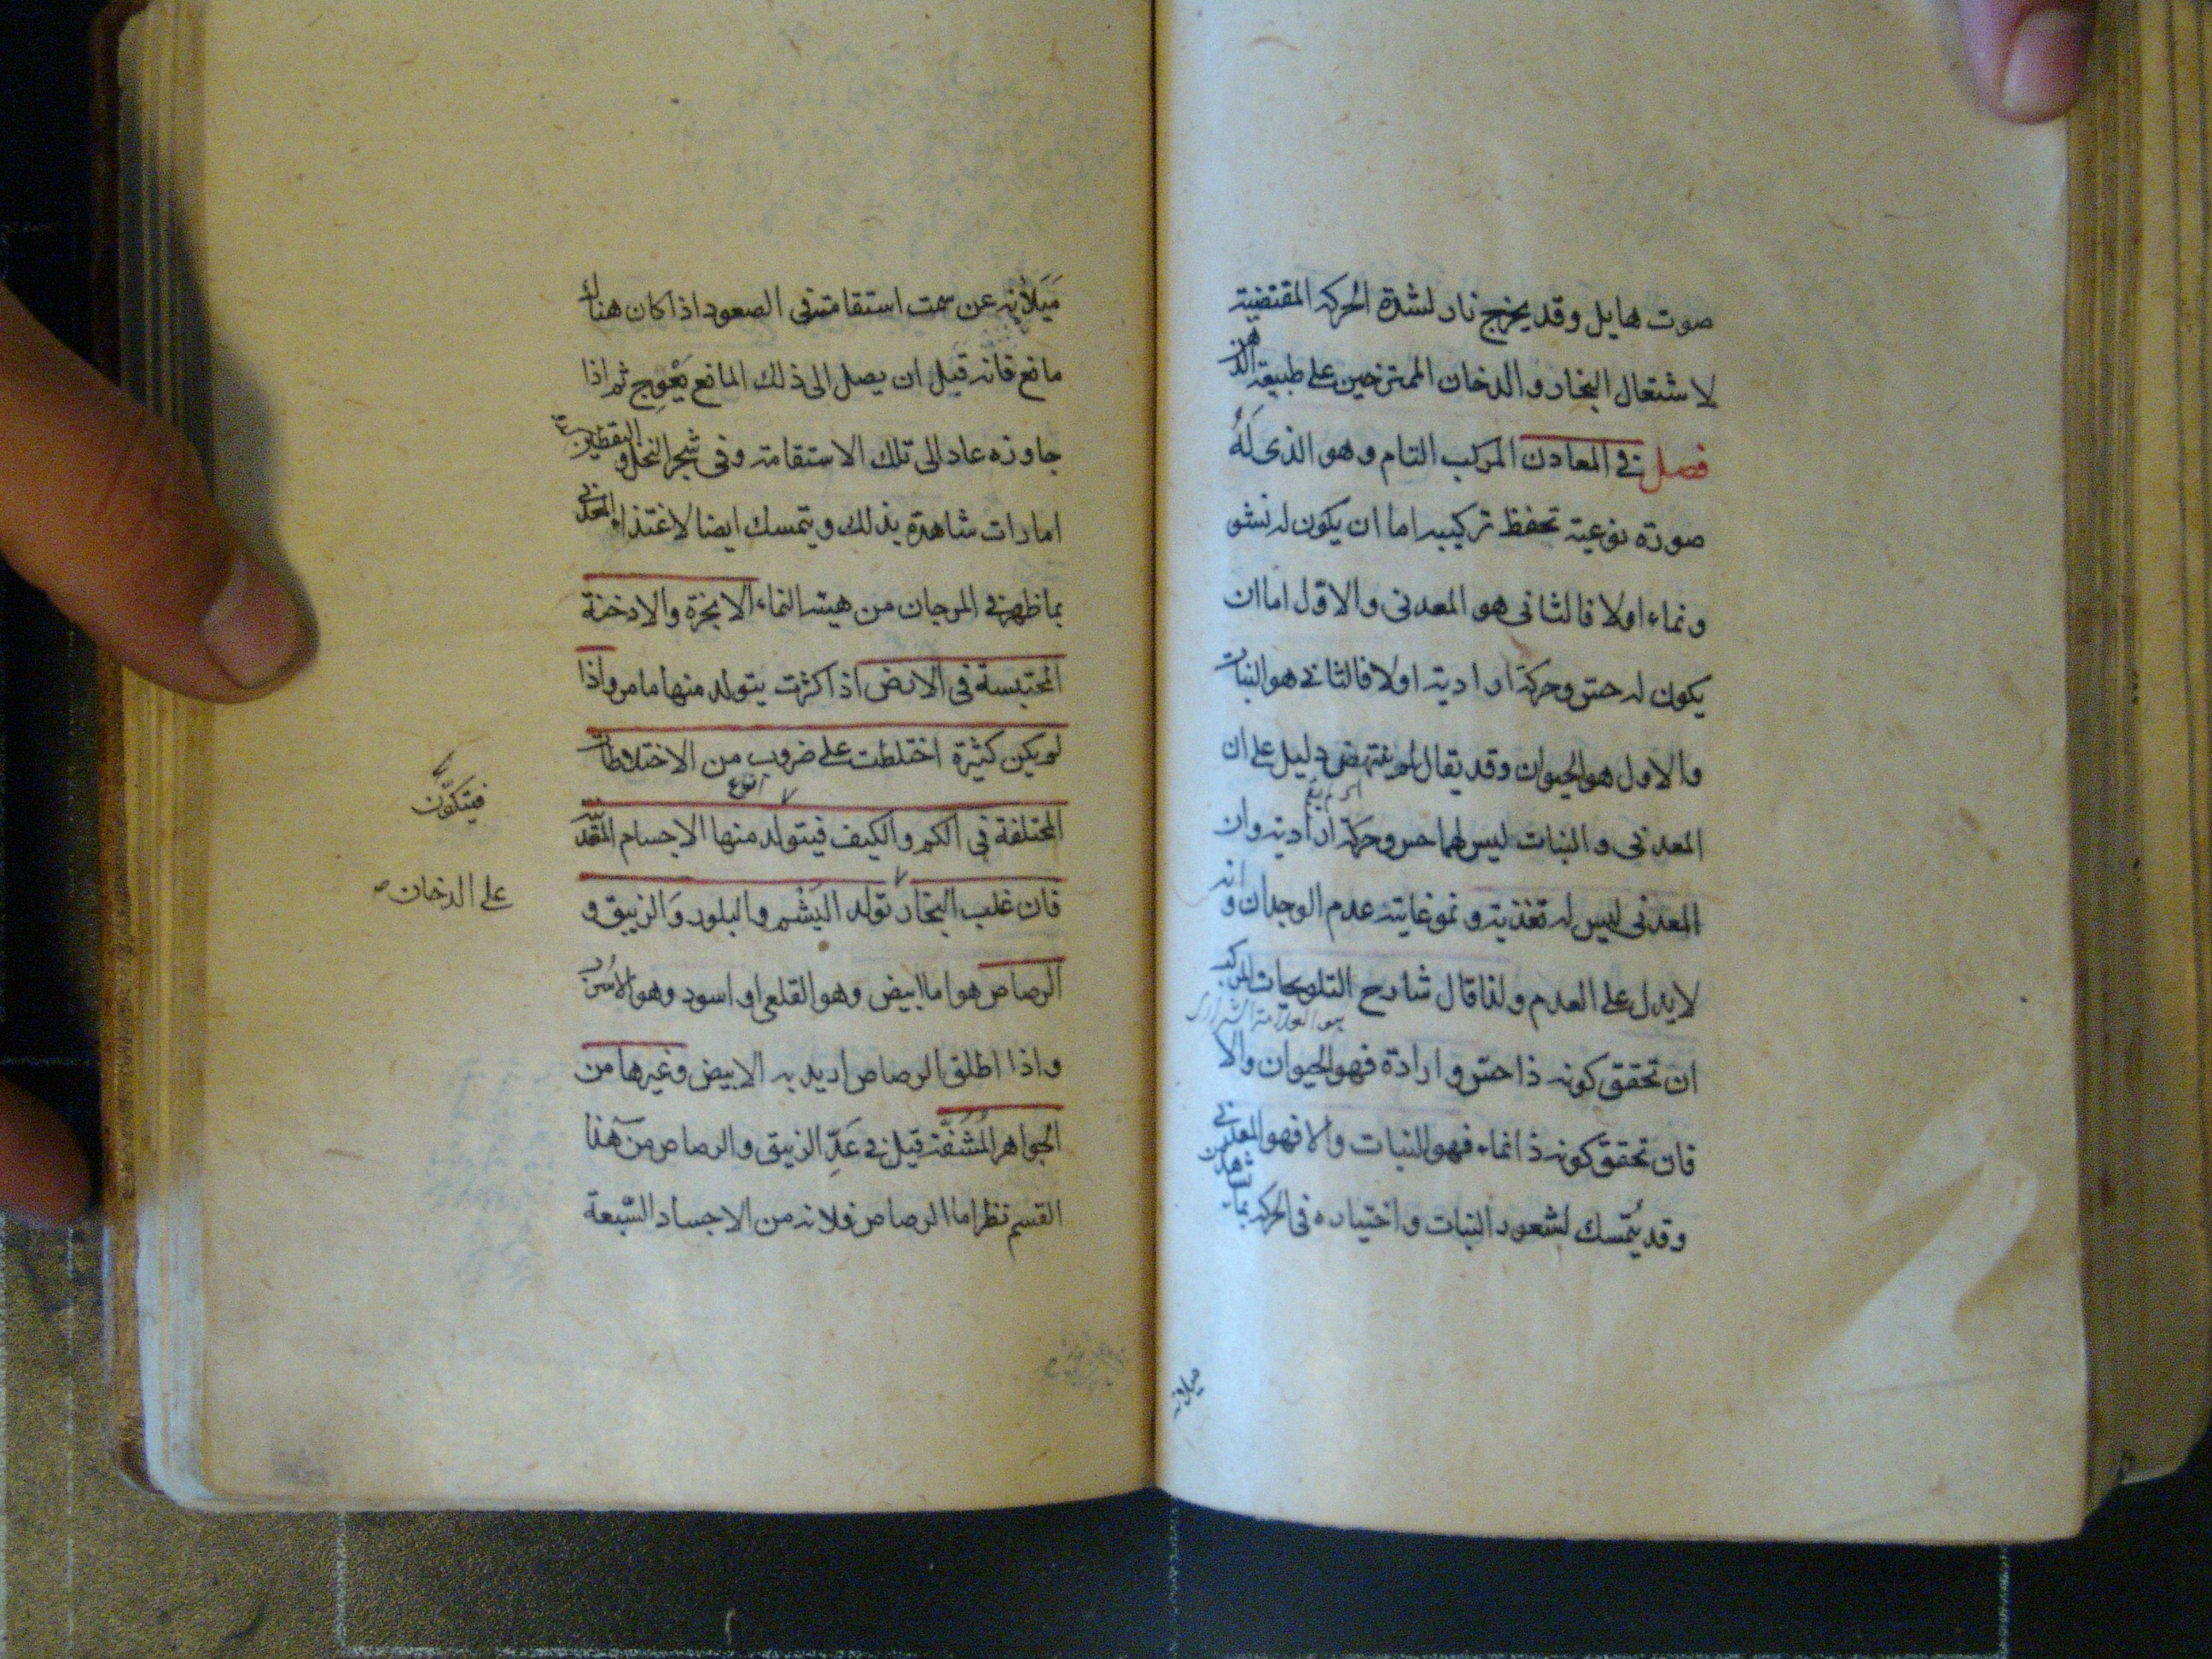 صوت هايل وقد يخرج نار لشدة الحركة المقتضية
لاشتعال البخار والدخان الممتزجين على طبيعة الدهن
فصل في المعادن المركب التام وهو الذى لَهُ
صورة نوعية تحفظ تركيبه اما ان يكون له نشو
ونماء اولا فالثانى هو المعدنى والاول اما ان
يكون له حس وحركة ارادية اولا فالثانى هو النبات
والاول هو الحيوان وقد يقال لم ينتهض دليل على ان
اى لم يقم
المعدنى والنبات ليس لهما حس وحركة ارادية وان
المعدنى ليس له تغذية ونمو غايته عدم الوجدان وانه
لايدل على العدم ولذا قال شارح التلويحات المركب
هو العلامة الشيرازى
ان تحقق كونه ذا حس وارادة فهو الحيوان والا
فان تحقق كونه ذا نماء فهو النبات والا فهو المعدنى
وقد يُتمسك لشعور النبات واختياره فى الحركة بما يشاهد من
ميلانه
مَيَلانه عن سمت استقامته فى الصعود اذا كان هناك
مانع فانه قبل ان يصل الى ذلك المانع يَعْوِج ثم اذا
جاوزه عاد الى تلك الاستقامة وفى شجر النخل واليقطين
امارات شاهدة بذلك ويتمسك ايضا لاغتذاء المعدنى
بما ظهر فى المرجان من هيئة النماء الابخرة والادخنة
المحتبسة فى الارض اذا كثرت يتولد منها ما مر واذا
لم يكن كثيرة اختلطت على ضروب من الاختلاطات
انواع
المختلفة فى الكم والكيف فيتولد منها الاجسام المعدنية
فيتكوّن
فان غلب البخار تولد اليَشْم والبلور وَالزيبق و
على الدخان
الرصاص هو اما ابيض وهو القلعى او اسود وهو الاُسرُب
واذا اطلق الرصاص اريد به الابيض وغيرها من
الجواهر المُشِفَّة قيل فى عَدِّ الزيبق والرصاص من هذا
القسم نظر اما الرصاص فلانه من الاجساد السّبعة